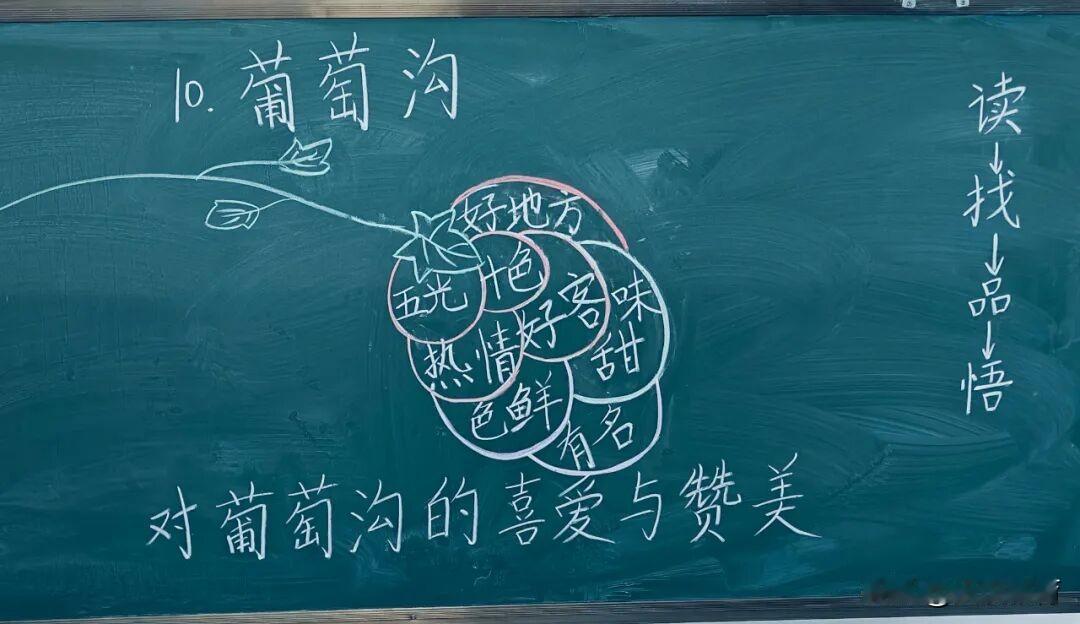 10.葡萄沟
好地方
五光
十色
热情
好客
味甜
色鲜
有名
对葡萄沟的喜爱与赞美
读
↓
找
↓
品
↓
悟